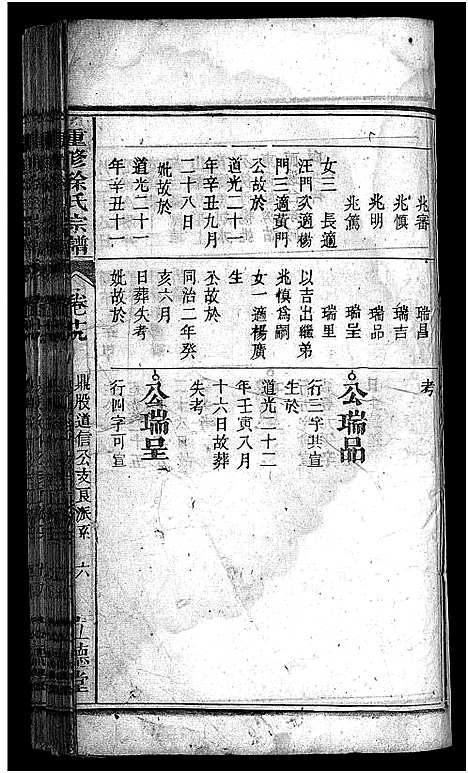 兆審
兆慎
兆明
兆篤
女三 長適
汪門次適楊
門三適黃門
公故於
道光二十一
年辛丑九月
二十八日
妣故於
道光二十一
年辛丑十一
瑞昌
瑞吉
瑞品
瑞呈
瑞里
以吉出繼弟
兆慎為嗣
女一適楊廣
生
公故於
同治二年癸
亥六月
日葬失考
妣故於
考
公瑞品
行三字其宣
生於
道光二十二
年壬寅八月
十六日故葬
失考
公瑞呈
行四字可宣
重修徐氏宗譜
卷之九
鼎股道信公支良派系
六
德堂